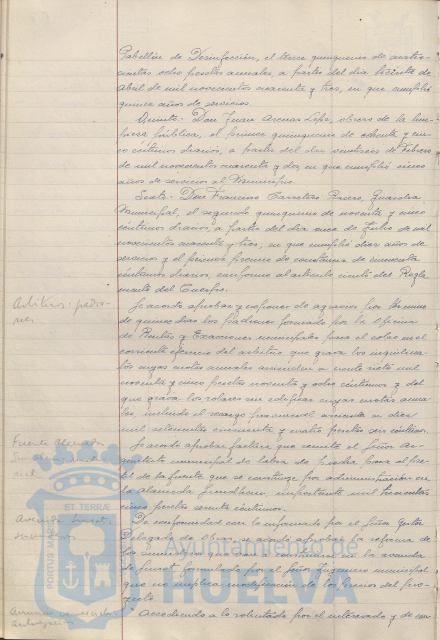 Pabellón de Desinfección, el tercer quinquenio de
cientas ocho pesetas anuales, a partir del día treinta de
abril de mil novecientos cuarenta y tres, en que cumplió
quince años de servicios.
Quinto.- Don Juan Arenas López, obrero de la lim-
pieza pública, el primer quinquenio de ochenta y cin-
co céntimos diarios, a partir del día veintiseis de Febrero
de mil novecientos cuarenta y dos, en que cumplió cinco
años de servicios al Municipio.
Sexto.- Don Francisco Carretero Guardia
Municipal, el segundo quinquenio de noventa y cinco
céntimos diarios, a partir del día once de Julio de mil
novecientos cuarenta y tres, en que cumplió diez años de
servicios y el primer premio de constancia de cincuenta
céntimos diarios, conforme al artículo del Regla-
mento del Cuerpo.
Arbitrios: padro-
nes.
Se acordó aprobar y exponer de agravios por término
de quince días los Padrones formados por la Oficina
de Rentas y Exacciones municipales para el cobro en el
corriente ejercicio del arbitrio que grava los inquilina-
tos cuyas cuotas anuales ascienden a ciento siete mil
noventa y cinco pesetas noventa y ocho céntimos y del
que grava los solares sin edificar cuyas cuotas anua-
les, incluido el recargo provincial asciende a diez
mil setecientas cincuenta y cuatro pesetas seis céntimos.
Fuente Alameda
Se acordó aprobar factura que remite el Señor Ar-
quitecto municipal de labra de piedra para el pi-
lar de la fuente que se construye por administración en
la Alameda Sundheim, importante mil trescientas
cinco pesetas setenta céntimos.
De conformidad con lo informado por el Señor Gestor
Delegado de Obras, se acordó aprobar la reforma de
los en la avenida
de formulado por el Señor Ingeniero municipal
que no implica modificación de los precios del pro-
yecto.
Accediendo a lo solicitado por el interesado y de con-
ET TERRÆ
PORTUS MARIS
Ayuntamiento de
HUELVA